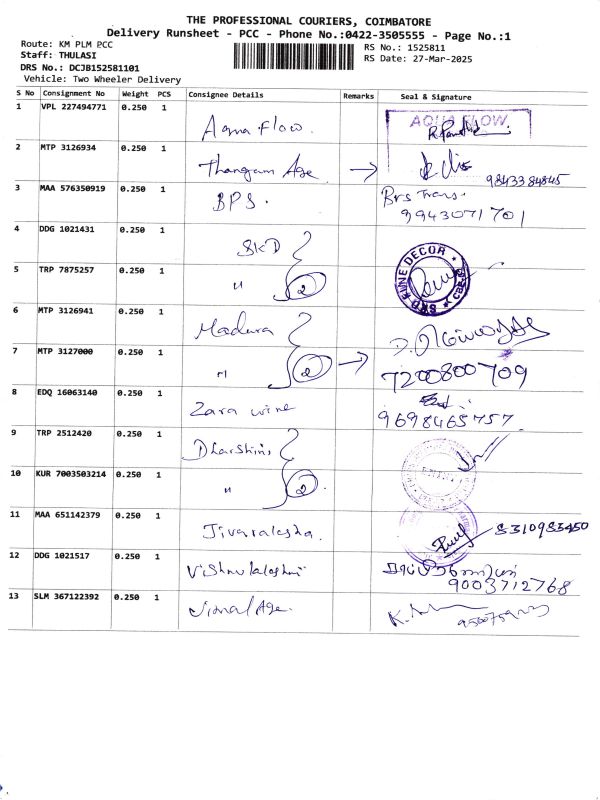 THE PROFESSIONAL COURIERS, COIMBATORE
Delivery Runsheet - PCC - Phone No.:0422-3505555 - Page No.:1
Route: KM PLM PCC
RS No.: 1525811
Staff: THULASI
RS Date: 27-Mar-2025
DRS No.: DCJB152581101
Vehicle: Two Wheeler Delivery
S No Consignment No Weight PCS Consignee Details Remarks Seal & Signature
1 VPL 227494771 0.250 1 Aqua Flow. AQUA FLOW
2 MTP 3126934 0.250 1 Thangam Age → 9843384845
3 MAA 576350919 0.250 1 BPS. Brs Trans.
9943071701
4 DDG 1021431 0.250 1 SKD
SKD FINE DECOR
5 TRP 7875257 0.250 1 " 2
6 MTP 3126941 0.250 1 Madura
7 MTP 3127000 0.250 1 " 2 → 7200800709
8 EDQ 16063140 0.250 1 Zara wine 9698465757
9 TRP 2512420 0.250 1 Dharshini
10 KUR 7003503214 0.250 1 " 2
11 MAA 651142379 0.250 1 8310983450
12 DDG 1021517 0.250 1 Vishnulakshmi
9003712768
13 SLM 367122392 0.250 1 Age.